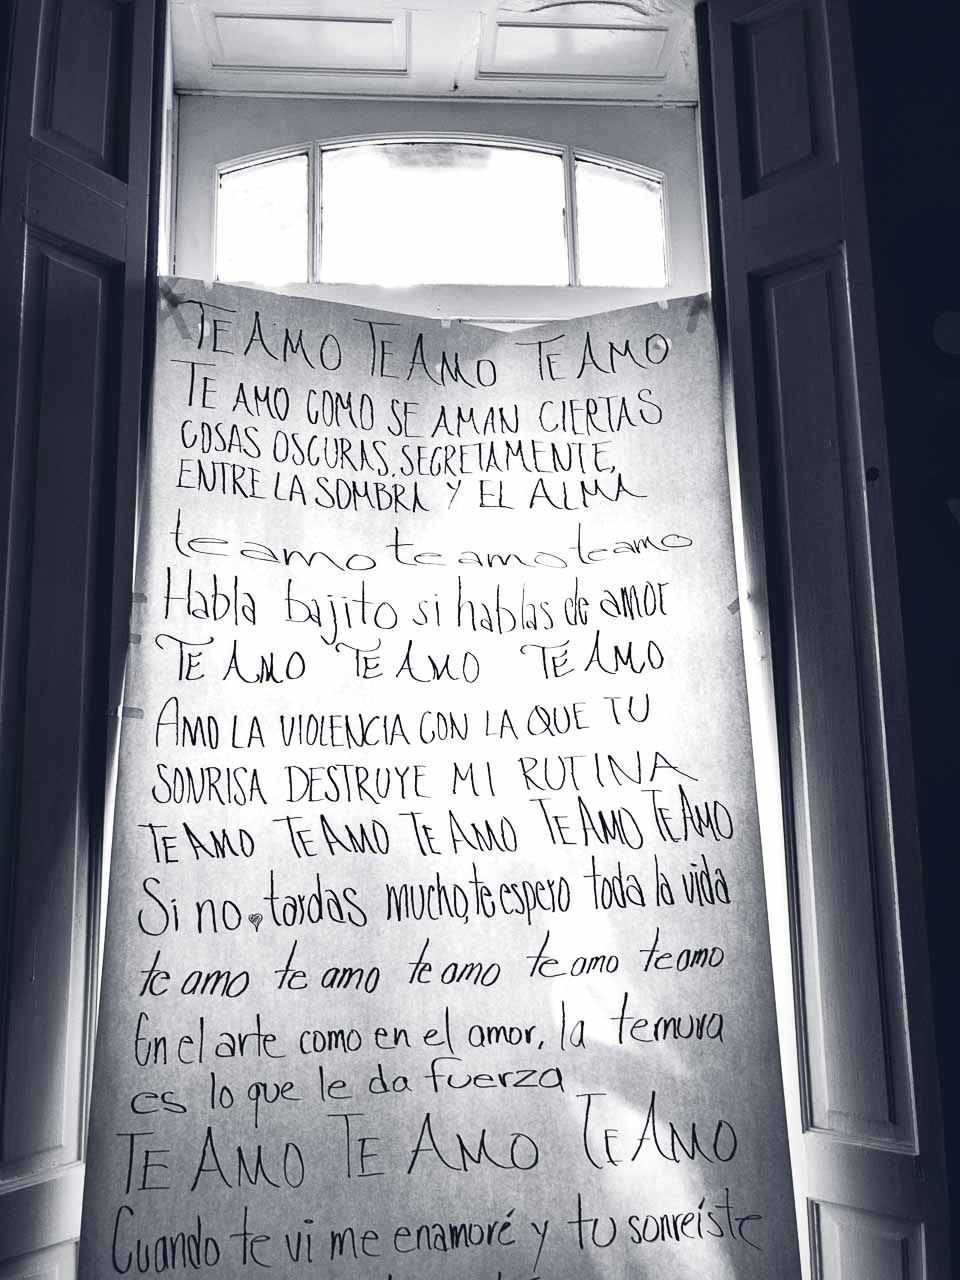 TE AMO TE AMO TE AMO
TE AMO COMO SE AMAN CIERTAS
COSAS OSCURAS, SECRETAMENTE,
ENTRE LA SOMBRA Y EL ALMA
te amo te amo te amo
Habla bajito si hablas de amor
TE AMO TE AMO TE AMO
AMO LA VIOLENCIA CON LA QUE TU
SONRISA DESTRUYE MI RUTINA
TE AMO TE AMO TE AMO TE AMO TE AMO
Si no tardas mucho, te espero toda la vida
te amo te amo te amo te amo te amo
En el arte como en el amor, la ternura
es lo que le da fuerza
TE AMO TE AMO TE AMO
Cuando te vi me enamoré y tu sonreíste